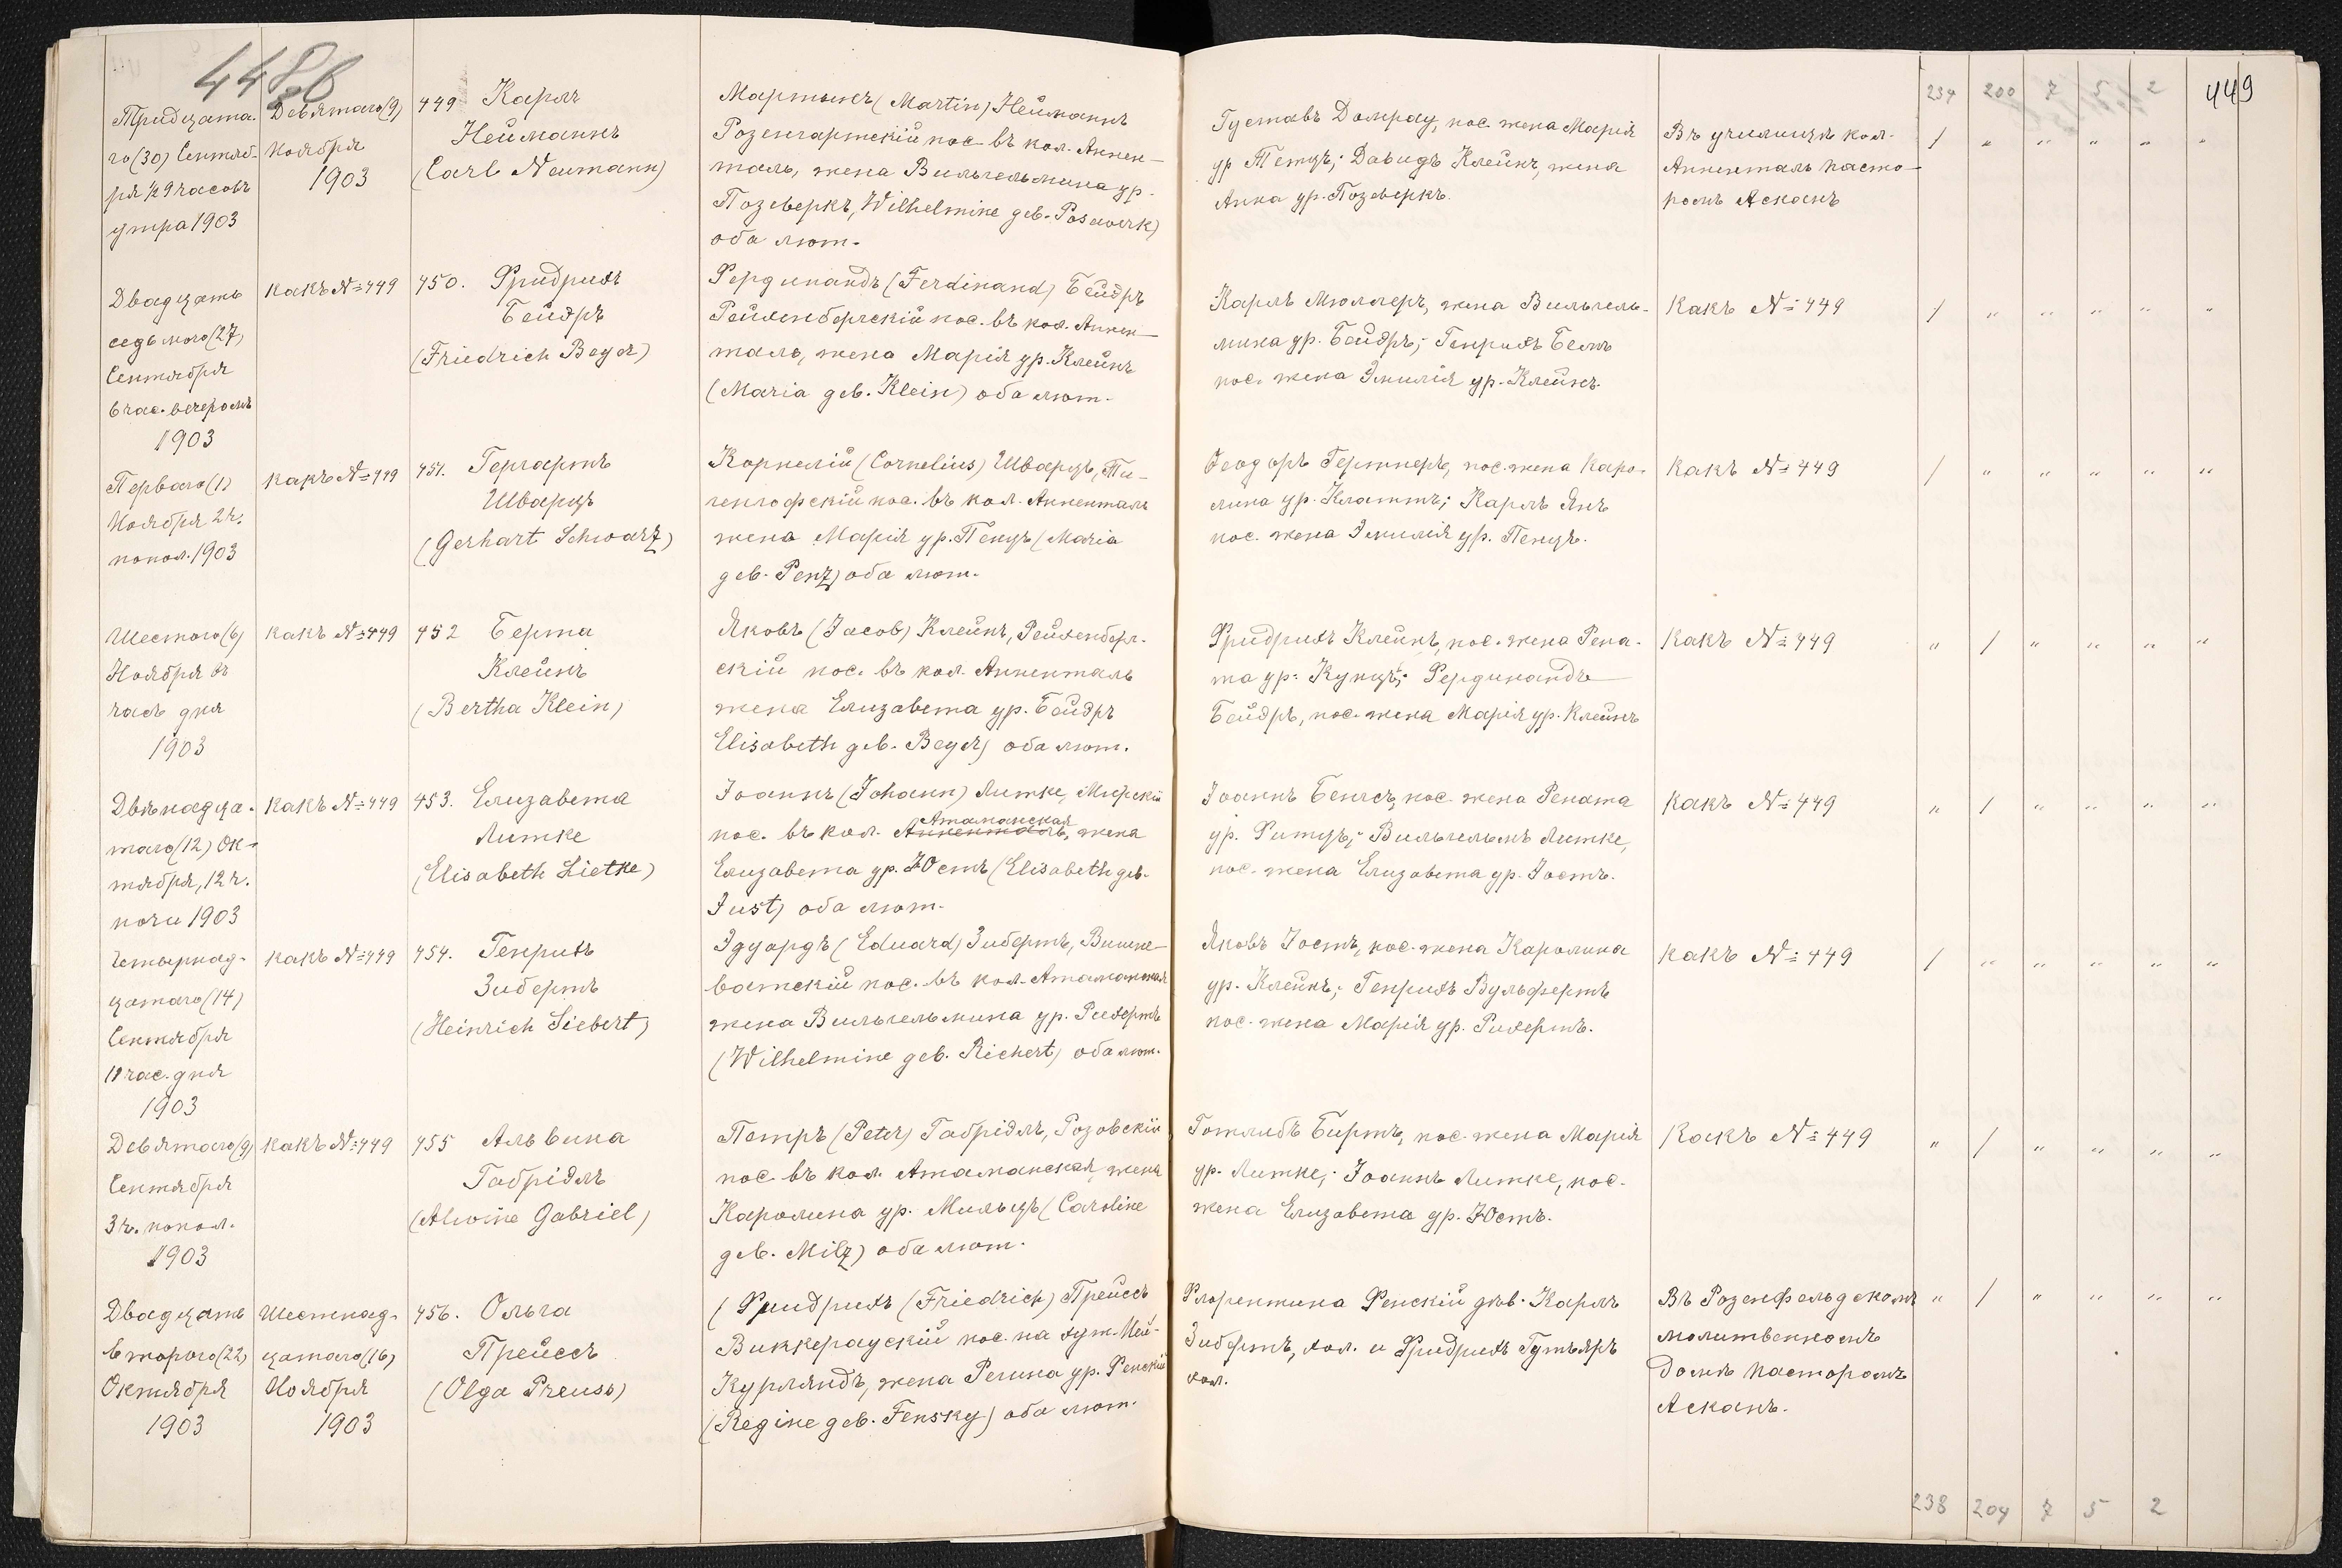 448 об
449
234 200 7 5 2
Тридцата-
го (30) Сентяб-
ря ½ 9 часовъ
утра 1903
Девятаго (9)
Ноября
1903
449 Карлъ
Нейманнъ
(Carl Neumann)
Мартынъ (Martin) Нейманнъ
Розенгартскій пос. въ кол. Аннен-
таль, жена Вильгельмина ур.
Позеверкъ, Wilhelmine geb. Posewerk)
оба лют.
Густавъ Домрау, пос. жена Марія
ур Тетцъ; Давидъ Клейнъ, жена
Анна ур. Позеверкъ.
Въ училищѣ кол.
Анненталь пасто-
ромъ Асканъ
/ „ „ „ „ „
Двадцать
седьмого (27)
Сентября
6 час. вечеромъ
1903
Какъ № 449
450. Фридрихъ
Бейэръ
(Friedrich Beyer)
Фердинандъ (Ferdinand) Бейэръ
Рейхенбергскій пос. въ кол. Аннен-
таль, жена Марія ур. Клейнъ
(Maria geb. Klein) оба лют.
Карлъ Мюллеръ, жена Вильгель-
мина ур. Бейэръ; Генрихъ Бемъ
пос. жена Эмилія ур. Клейнъ.
Какъ № 449
/ „ „ „ „ „
Перваго (1)
Ноября 2 ч.
попол. 1903
Какъ № 449
451. Гергартъ
Шварцъ
(Gerhart Schwarz)
Корнелій (Cornelius) Шварцъ, Ти-
генгофскій пос. въ кол. Анненталь
жена Марія ур. Пенцъ (Maria
geb. Penz) оба лют.
Ѳеодоръ Гертнеръ, пос. жена Каро-
лина ур. Клаттъ; Карлъ Янъ
пос. жена Эмилія ур. Пенцъ.
Какъ № 449
/ „ „ „ „ „
Шестого (6)
Ноября въ
часъ дня
1903
Какъ № 449
452 Берта
Клейнъ
(Bertha Klein)
Яковъ (Jacob) Клейнъ, Рейхенберг-
скій пос. въ кол. Анненталь
жена Елизавета ур. Бейэръ
Elisabeth geb. Beyer) оба лют.
Фридрихъ Клейнъ, пос. жена Рена-
та ур. Кунцъ; Фердинандъ
Бейэръ, пос. жена Марія ур. Клейнъ
Какъ № 449
„ / „ „ „ „
Двѣнадца-
таго (12) Ок-
тября, 12 ч.
ночи 1903
Какъ № 449
453. Елизавета
Литке
(Elisabeth Lietke)
Іоаннъ (Johann) Литке, Мирскій
Атаманская
пос. въ кол. Анненталь, жена
Елизавета ур. Юстъ (Elisabeth geb.
Just) оба лют.
Іоаннъ Бенъ, пос. жена Рената
ур. Ритцъ; Вильгельмъ Литке,
пос. жена Елизавета ур. Іостъ.
Какъ № 449
„ / „ „ „ „
Четырнад-
цатаго (14)
Сентября
11 час. дня
1903
Какъ № 449
454. Генрихъ
Зибертъ
(Heinrich Siebert)
Эдуардъ (Eduard) Зибертъ, Вишне-
ватскій пос. въ кол. Атаманская
жена Вильгельмина ур. Рихертъ
(Wilhelmine geb. Richert) оба лют.
Яковъ Іостъ, пос. жена Каролина
ур. Клейнъ; Генрихъ Вульфертъ
пос. жена Марія ур. Рихертъ.
Какъ № 449
/ „ „ „ „ „
Девятаго (9)
Сентября
3 ч. попол.
1903
Какъ № 449
455 Альвина
Габріэль
(Alwine Gabriel)
Петръ (Peter) Габріэль, Розовскій
пос. въ кол. Атаманская, жена
Каролина ур. Мильцъ (Caroline
geb. Milz) оба лют.
Готлибъ Биртъ, пос. жена Марія
ур. Литке; Іоаннъ Литке, пос.
жена Елизавета ур. Юстъ.
Какъ № 449
„ / „ „ „ „
Двадцать
второго (22)
Октября
1903
Шестнад-
цатаго (16)
Ноября
1903
456. Ольга
Прейссъ
(Olga Preuss)
(Фридрихъ (Friedrich) Прейссъ
Виккерауский пос. на хут. Ней-
Курляндъ, жена Регина ур. Фенскій
(Regine geb. Fensky) оба лют.
Флорентина Фенскій дѣв. Карлъ
Зибертъ, хол. и Фридрихъ Гутъяръ
хол.
Въ Розенфельдскомъ
молитвенномъ
домѣ пасторомъ
Асканъ.
„ / „ „ „ „
238 204 7 5 2